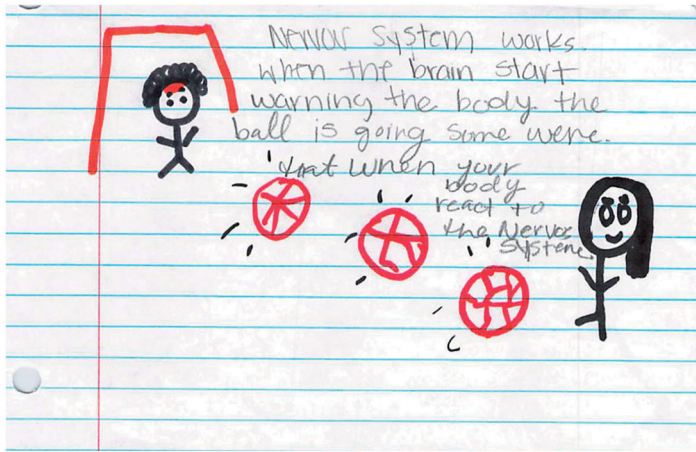 Nervor System works.
when the brain start
warning the body. the
ball is going some were.
that when your
body
react to
the Nervos
Systeme